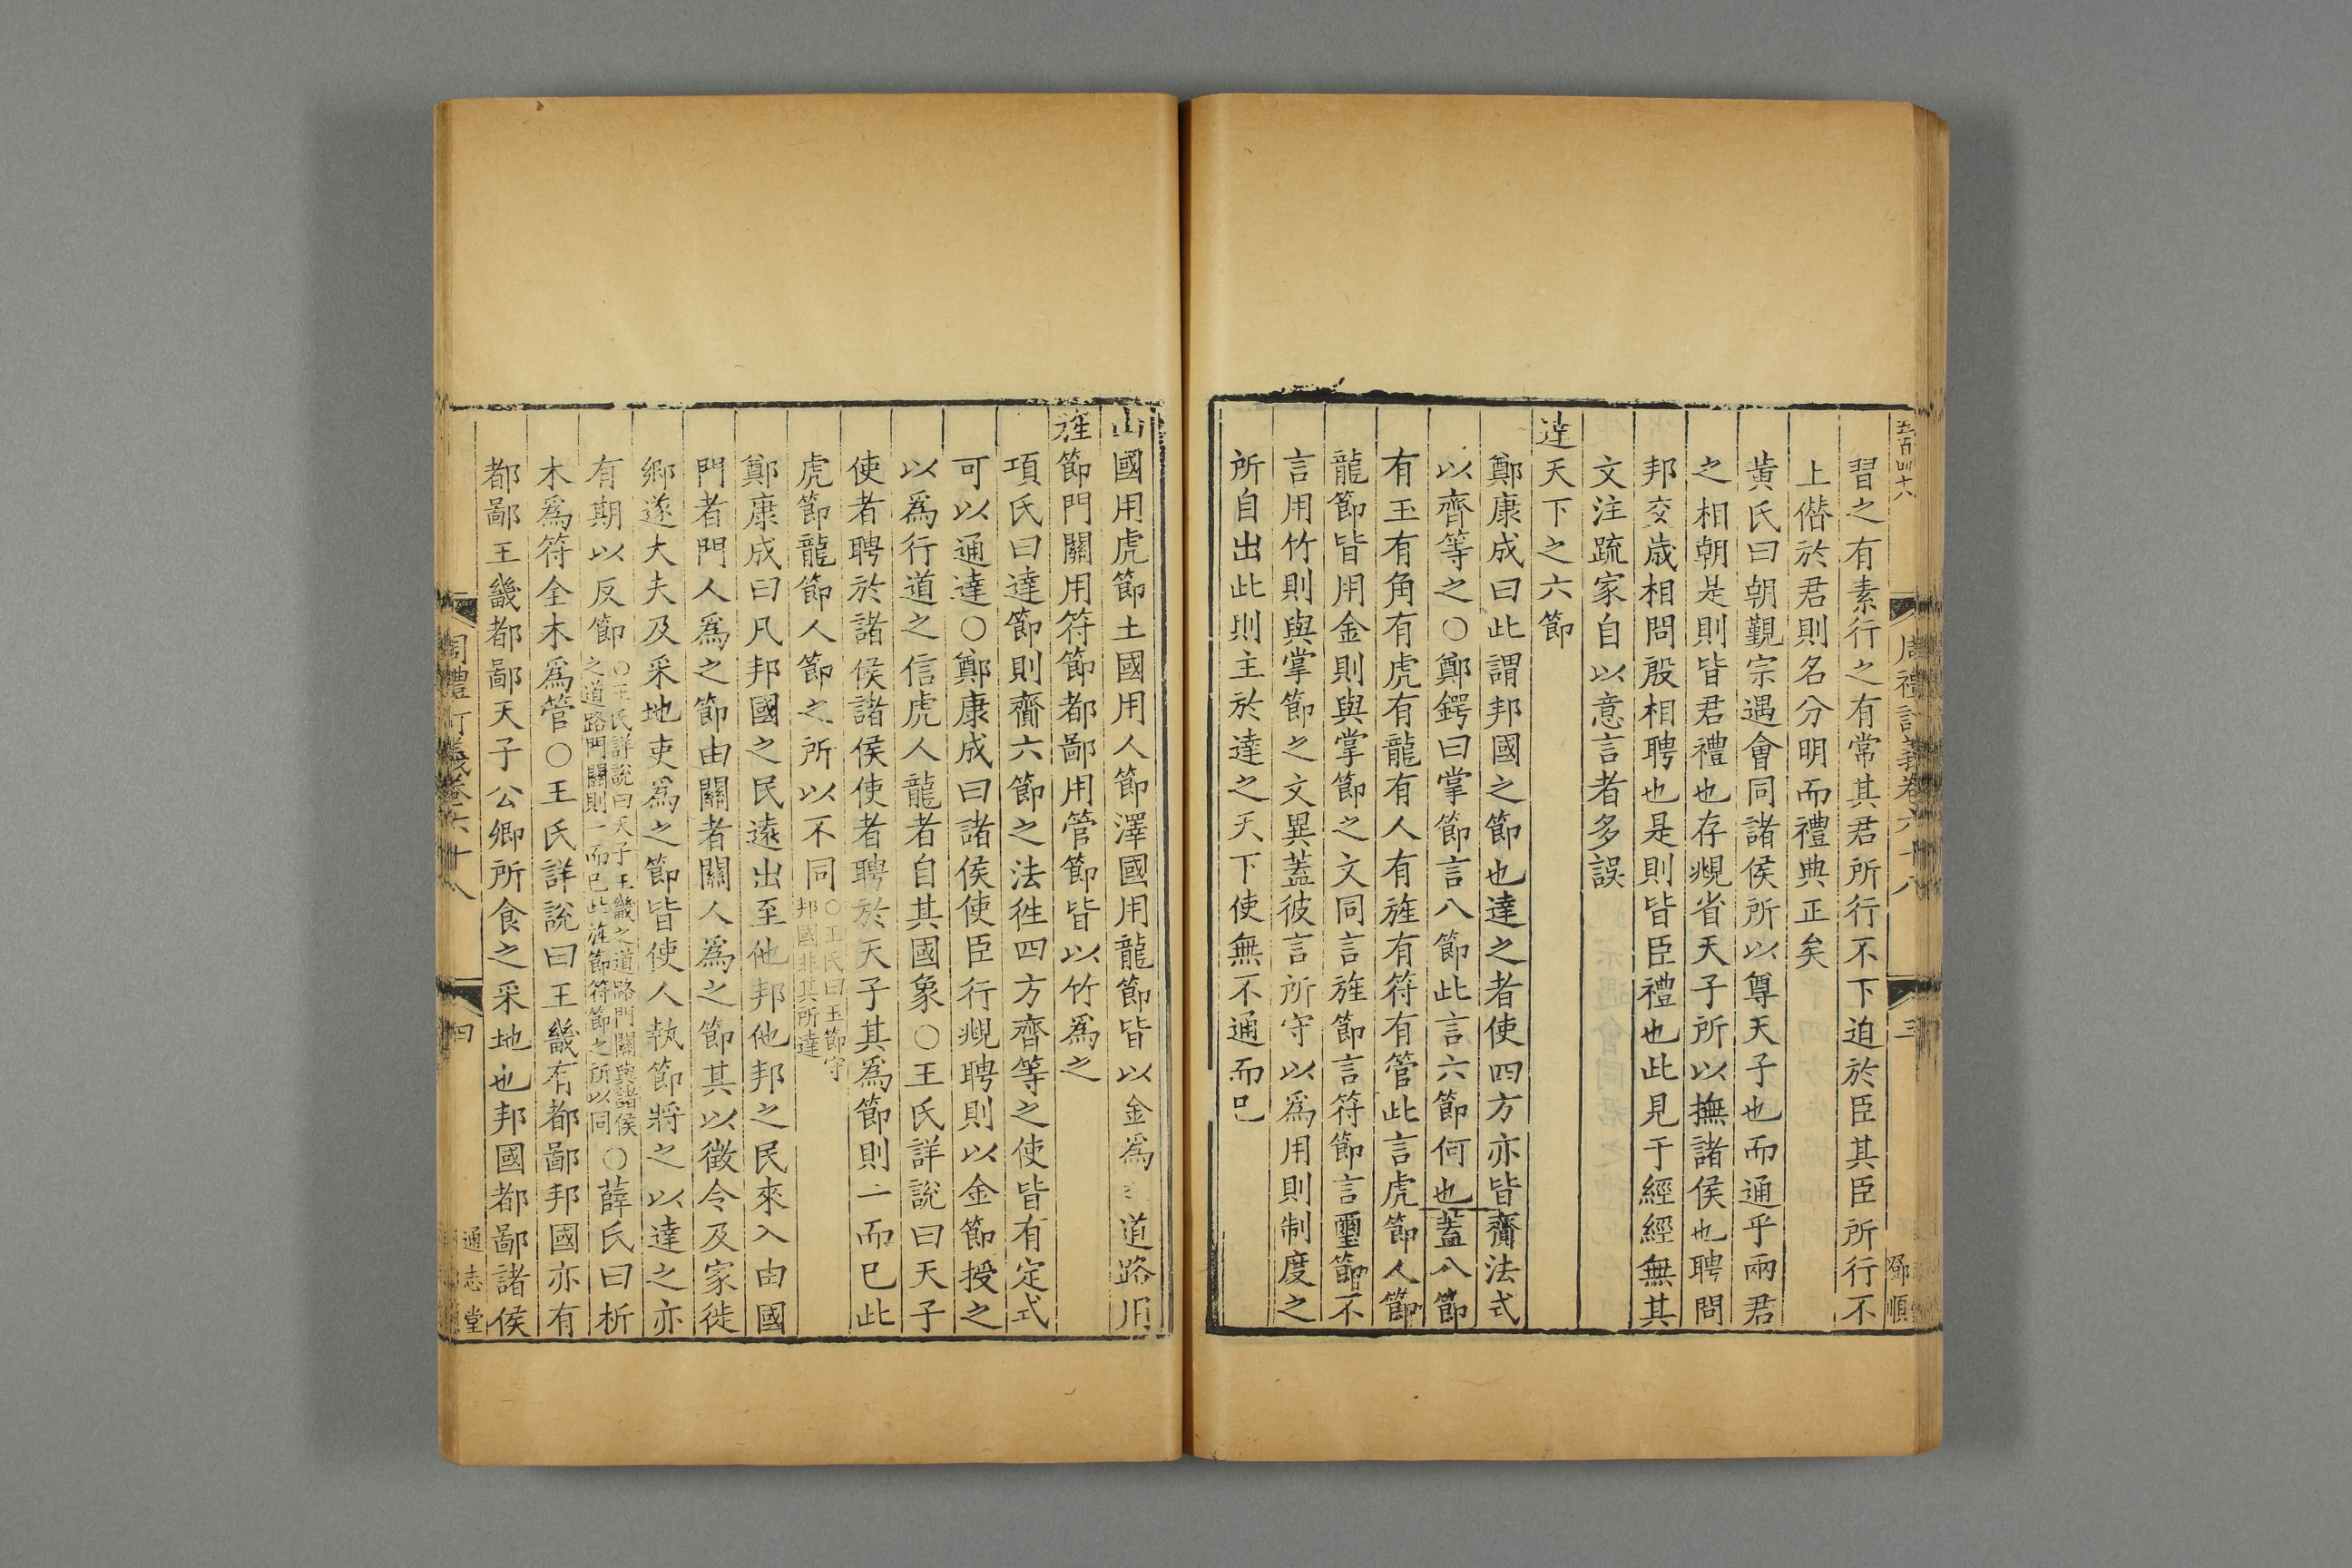 五百四十八
周禮訂義卷六十八
三
鄧順
習之有素行之有常其君所行不下迫於臣其臣所行不
上僣於君則名分明而禮典正矣
黃氏曰朝覲宗遇會同諸侯所以尊天子也而通乎兩君
之相朝是則皆君禮也存覜省天子所以撫諸侯也聘問
邦交歲相問殷相聘也是則皆臣禮也此見于經經無其
文注疏家自以意言者多誤
達天下之六節
鄭康成曰此謂邦國之節也達之者使四方亦皆齎法式
以齊等之○鄭鍔曰掌節言八節此言六節何也蓋八節
有玉有角有虎有龍有人有旌有符有管此言虎節人節
龍節皆用金則與掌節之文同言旌節言符節言璽節不
言用竹則與掌節之文異蓋彼言所守以爲用則制度之
所自出此則主於達之天下使無不通而已
山國用虎節土國用人節澤國用龍節皆以金爲之道路用
旌節門關用符節都鄙用管節皆以竹爲之
項氏曰達節則齎六節之法徃四方齊等之使皆有定式
可以通達○鄭康成曰諸侯使臣行覜聘則以金節授之
以爲行道之信虎人龍者自其國象○王氏詳說曰天子
使者聘於諸侯諸侯使者聘於天子其爲節則一而已此
虎節龍節人節之所以不同○王氏曰玉節守邦國非其所達
鄭康成曰凡邦國之民遠出至他邦他邦之民來入由國
門者門人爲之節由關者關人爲之節其以徵令及家徙
鄉遂大夫及采地吏爲之節皆使人執節將之以達之亦
有期以反節○王氏詳說曰天子王畿之道路門關與諸侯之道路門關則一而已此旌節符節之所以同○薛氏曰析
木爲符全木爲管○王氏詳說曰王畿有都鄙邦國亦有
都鄙王畿都鄙天子公卿所食之采地也邦國都鄙諸侯
周禮訂義卷六十八
四
通志堂